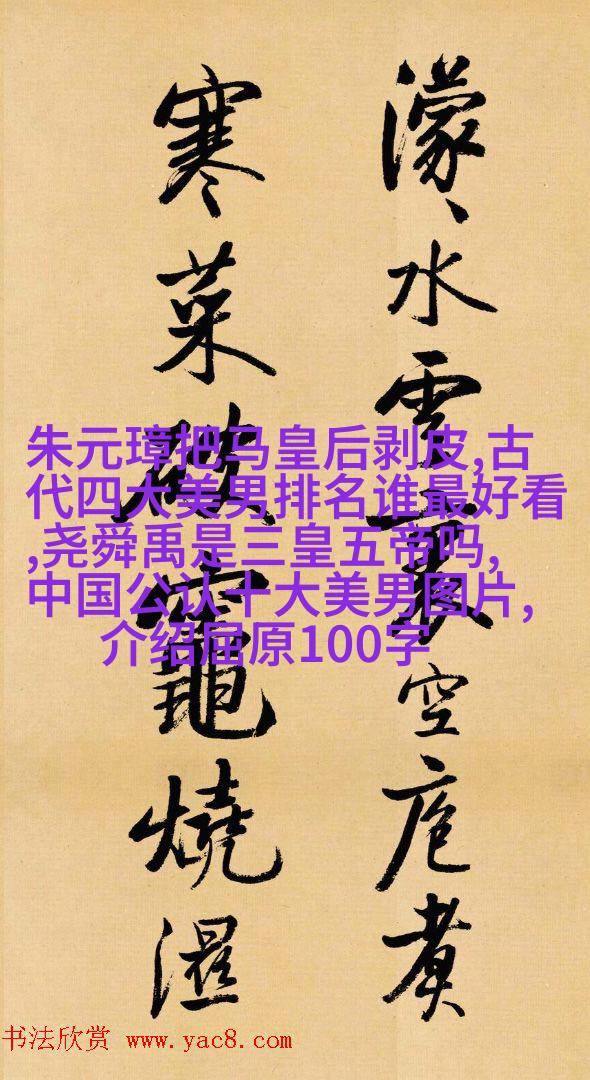 濛〻水雲裏空庖煮
寒菜破竈燒濕
朱元璋把马皇后剥皮,古
代四大美男排名谁最好看
,尧舜禹是三皇五帝吗,
中国公认十大美男图片,
介绍屈原100字
书法欣赏 www.yac8.com